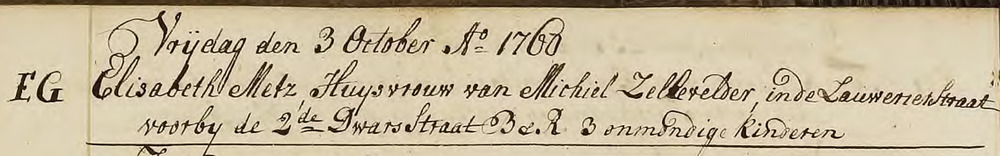 Vrijdag den 3 October Ao 1760
EG Elisabeth Metz, Huysvrouw van Michiel Zellevelder, inde Lauwerierstraat
voorby de 2de Dwars Straat B & R 3 onmondige kinderen